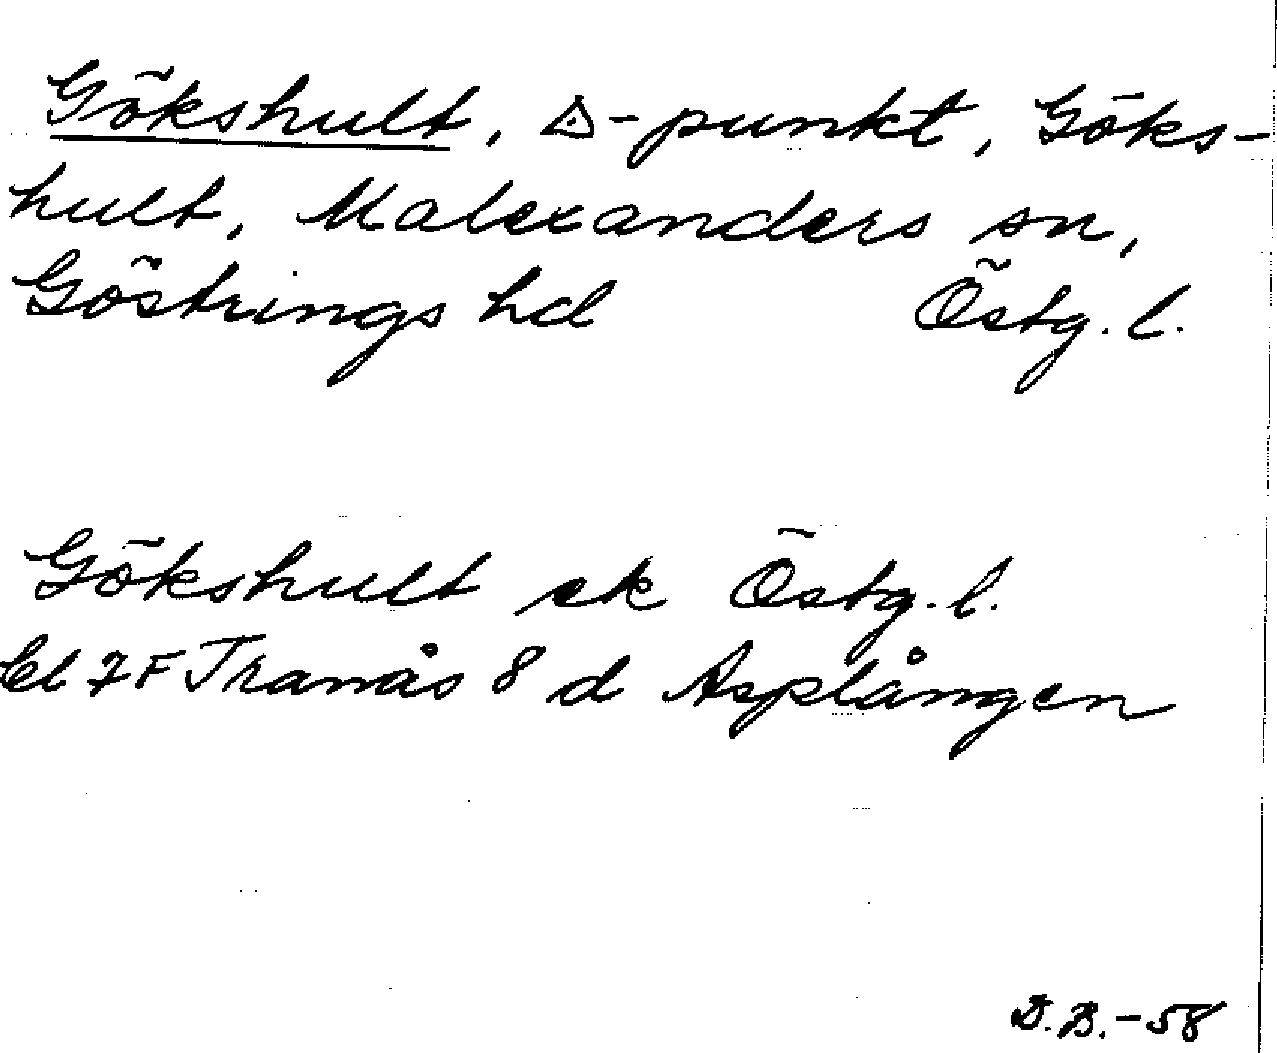 Gökshult, △-punkt, Göks-
hult, Malexanders sn,
Göstrings hd Östg. l.
Gökshult ek Östg. l.
bl 7F Tranås 8 d Asplången
D.B.-58